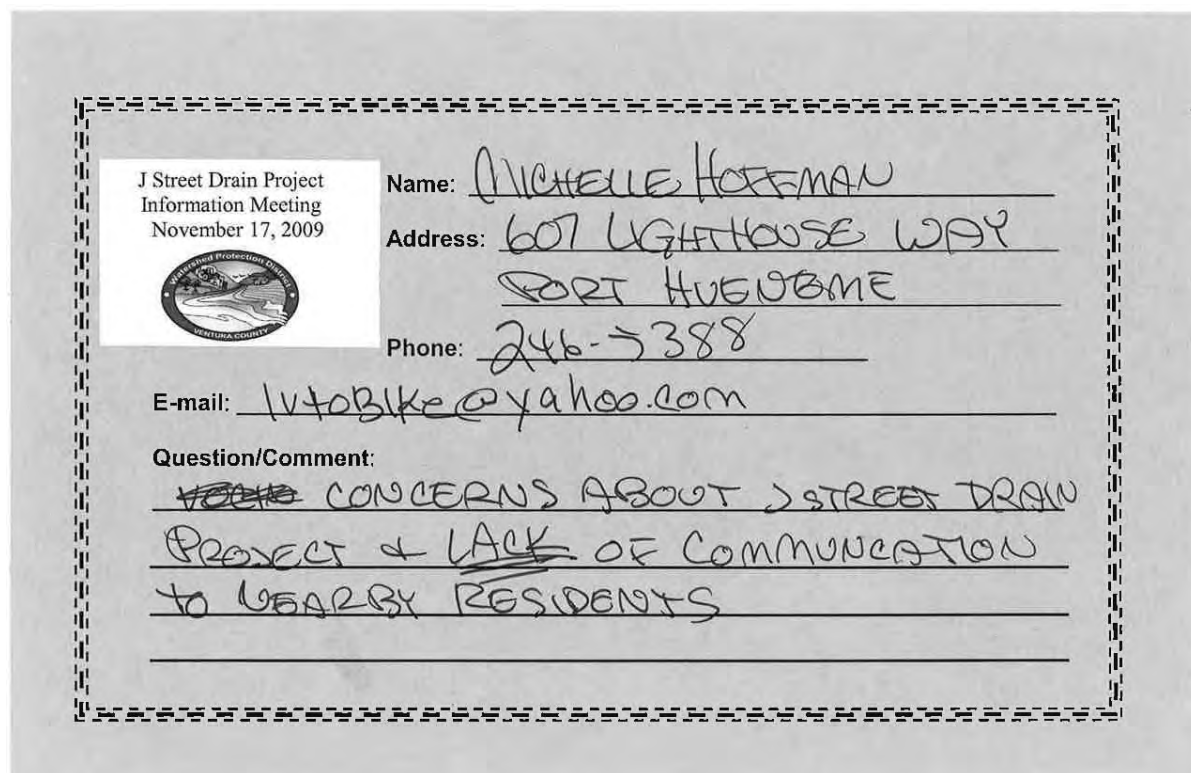 J Street Drain Project
Information Meeting
November 17, 2009
Watershed Protection District
VENTURA COUNTY
Name: MICHELLE HOFFMAN
Address: 607 LIGHTHOUSE WAY
PORT HUENEME
Phone: 246-5388
E-mail: lvtoBike@yahoo.com
Question/Comment:
CONCERNS ABOUT J STREET DRAIN
PROJECT & LACK OF COMMUNCATION
to NEARBY RESIDENTS